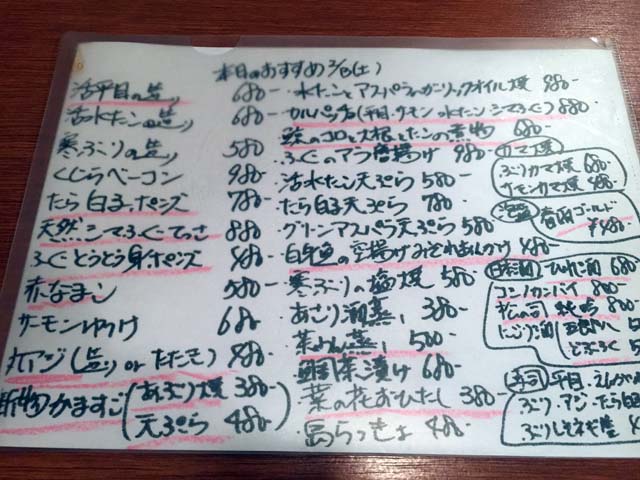 本日のおすすめ 2/13(土)
活平目の造り 680-
活水たこの造り 680-
寒ぶりの造り 580
くじらベーコン 980-
たら白子ポンズ 780-
天然シマふぐてっさ 880
ふぐとうとう身ポンズ 480-
赤なまこ 580-
サーモンゆっけ 680
丸アジ(造り or たたき) 480-
かますご(あぶり焼 380-
天ぷら 480-)
水たことアスパラガーリックオイル焼 980-
カルパッチョ(平目 サーモン 水たこ シマふぐ) 880
大根とたこの煮物 680
ふぐのアラ唐揚げ 980-
活水たこ天ぷら 580-
たら白子天ぷら 780
グリーンアスパラ天ぷら 580
白身魚の空揚げみぞれあんかけ 480-
寒ぶりの塩焼 580
あさり酒蒸し 380
茶わん蒸し 500
鯛茶漬け 680
菜の花おひたし 380
島らっきょ 480
カマ焼
ぶりカマ焼 680
サーモンカマ焼 480
春雨ゴールド
¥480
日本酒 ひれ酒 680
コシノカンバイ 800
松の司 800
にごり酒
どぶろく
寿司 平目
ぶり アジ たら白子
ぶりしそネギ